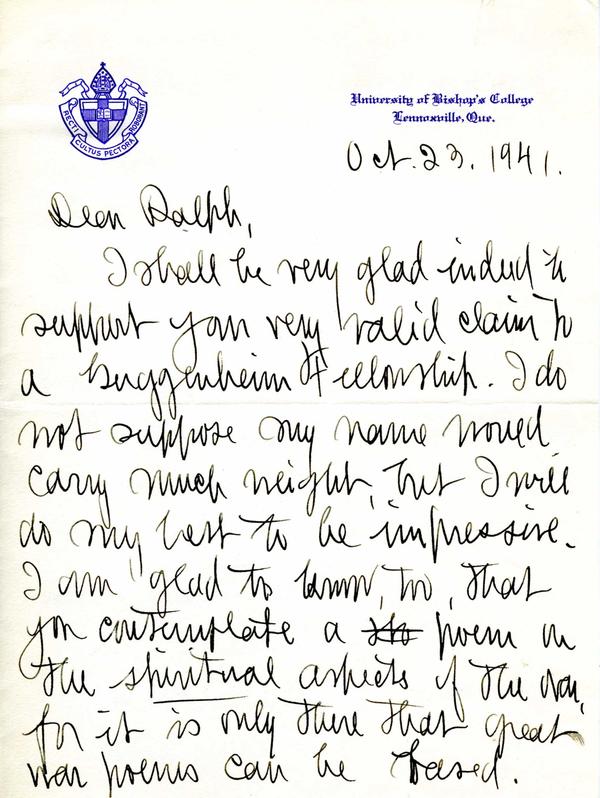 RECTI CULTUS PECTORA ROBORANT
University of Bishop's College
Lennoxville, Que.
Oct. 23. 1941.
Dear Ralph,
I shall be very glad indeed to
support your very valid claim to
a Guggenheim Fellowship. I do
not suppose my name would
carry much weight, but I will
do my best to be impressive.
I am glad to know, too, that
you contemplate a poem on
the spiritual aspects of the war,
for it is only there that great
war poems can be based.